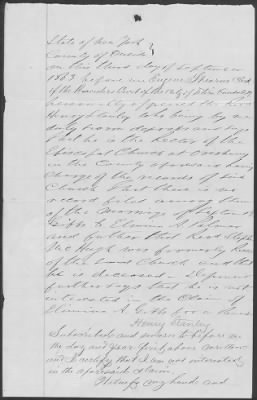 State of New York
County of Oneida
on this third day of September
1863 before me Eugene Stearns Clerk
of the Recorders Court of the City of Utica
personally appeared the Rev
Henry Stanley who being by me
duly sworn deposes and says
that he is the Rector of the
Episcopal Church at
in the County aforesaid having
charge of the records of said
Church That there is no
record filed among them
of the Marriage of
Gibbs to A.
and further The Rev
Mc Hugh was formerly Rector
of the said Church and that
he is deceased — Deponent
further says that he is not
interested in the Claim of
A. Gibbs for a
Henry Stanley
Subscribed and sworn to before me
the day and year first above written
and I certify that I am not interested
in the aforesaid claim.
Witness my hand and